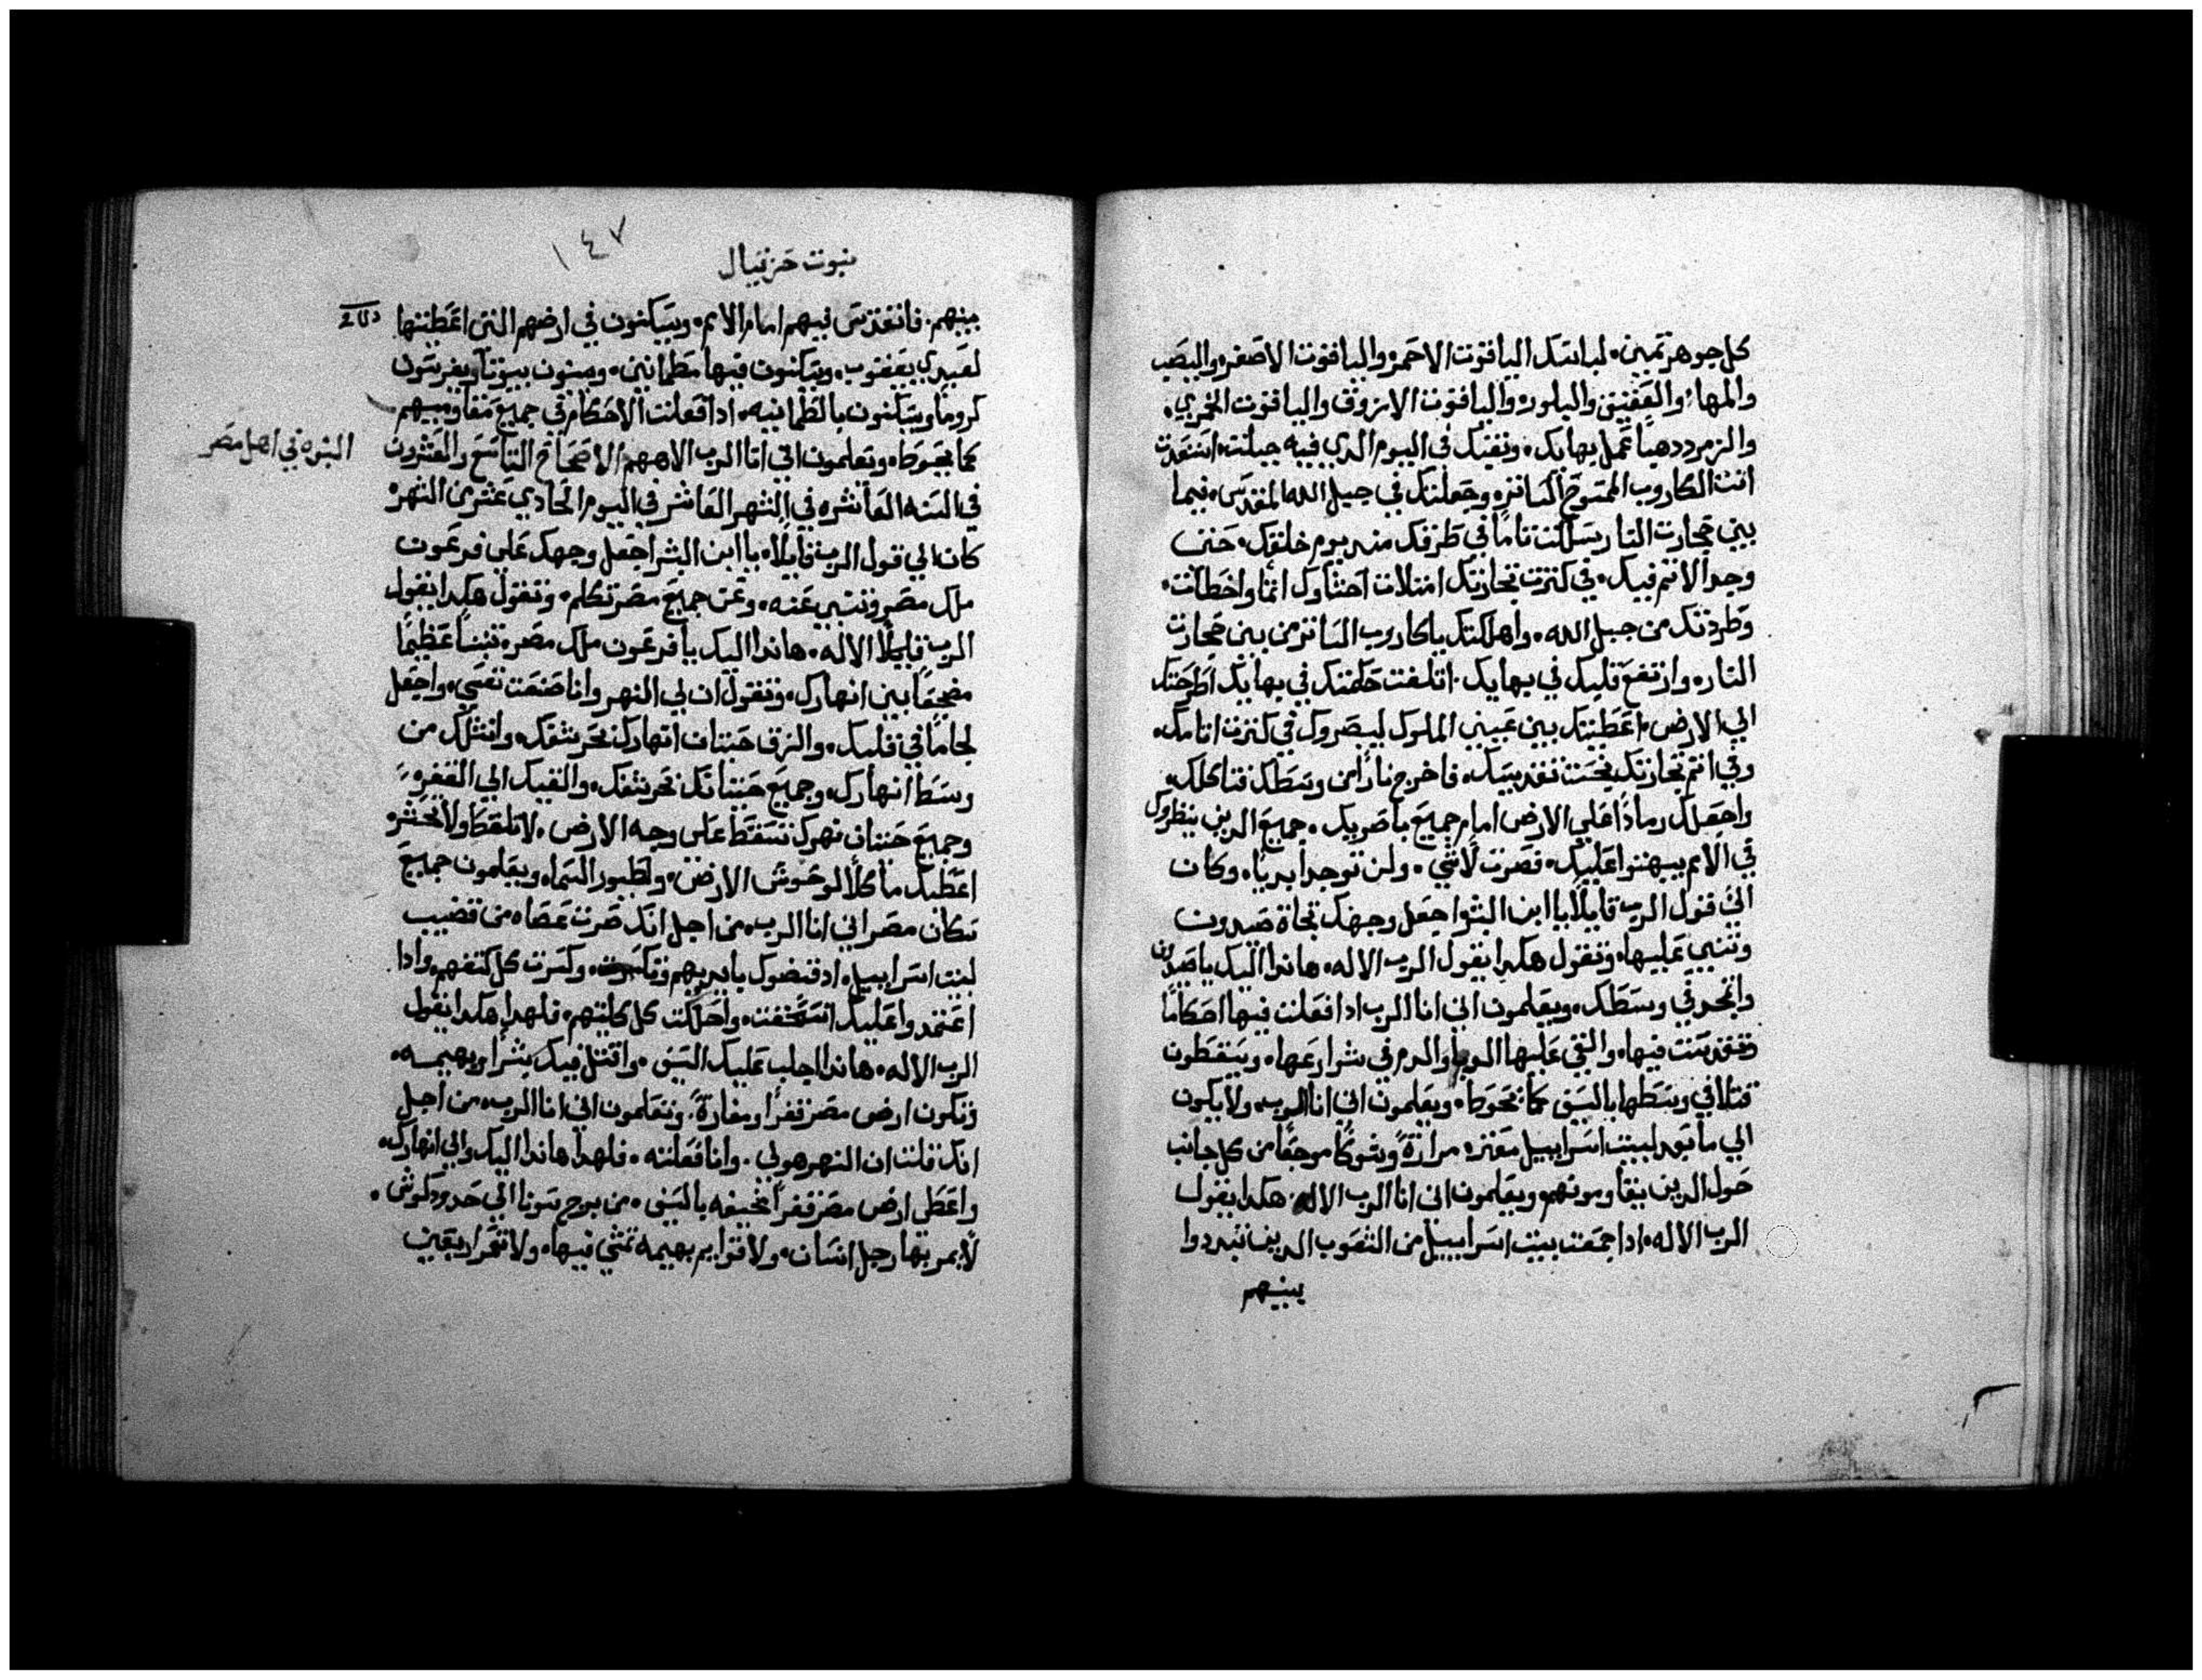 كل جوهر تمين. لباسك الياقوت الاحمر والياقوت الاصفر واليصب
والمها والعقيق والبلور والياقوت الازرق والياقوت الخمري.
والزمرد دهباً عمل بهايك. وتقبك في اليوم الدي فيه جبلت. استعدت
انت الكاروب الممسوح الساتر. وجعلتك في جبل الله المقدس. فيما
بين حجارت النار سلكت تاماً في طرقك مند يوم خلقك. حتى
وجد الاتم فيك. في كترت تجارتك امتلات احشاوك اتماً واخطات.
وطردتك من جبل الله. واهلكتك ياكاروب الساتر من بين حجارت
النار. وارتفع قلبك في بهايك. اتلفت حكمتك في بهايك اطرحتك
الي الارض. اعطيتك بين عيني الملوك ليبصروك في كترت اتامك.
وفي اتم تجارتك نجست تقديسك. فاخرج ناراً من وسطك فتاكلك.
واجعلك رماداً علي الارض امام جميع باصريك. جميع الدين ينظروك
في الامم يبهتوا عليك. فصرت لاشي. ولن توجد ابدياً. وكان
الي قول الرب قايلاً يا ابن البشر اجعل وجهك تجاة صيدون
وتنبي عليها. وتقول هكدا يقول الرب الاله. هاندا اليك ياصيدون
واتمجد في وسطك. ويعلمون اني انا الرب ادا فعلت فيها احكاماً
وتقدست فيها. والقي عليها الوبا والدم في شوارعها. ويسقطون
قتلا في وسطها بالسيف كما تحوط. ويعلمون اني انا الرب. ولا يكون
الي ما بعد لبيت اسراييل معتره مرارةً وشوكاً موجعاً من كل جانب
حول الدين يتقاومونهم ويعلمون اني انا الرب الاله. هكدا يقول
الرب الاله. ادا جمعت بيت اسراييل من الشعوب الدين تبددوا
بينهم
١٤٧
نبوت حزقيال
بينهم. فاتقدس فيهم امام الامم. ويسكنون في ارضهم التي اعطيتها
لعبدي يعقوب. ويسكنون فيها مطمانين. ويبنون بيوتاً ويغرسون
كروماً ويسكنون بالطمانيه. ادا فعلت الاحكام في جميع مقاوميهم
كما يحوط. ويعلمون اني انا الرب الاههم الاصحاح التاسع والعشرون
النبوه في اهل مصر
في السنه العاشره في الشهر العاشر في اليوم الحادي عشر من الشهر
كان الي قول الرب قايلاً. يا ابن البشر اجعل وجهك علي فرعون
ملك مصر وتنبي عنه. وعن جميع مصر تكلم. وتقول هكدا يقول
الرب الاله. هاندا اليك يا فرعون ملك مصر. تنيناً عظيماً
مضجعاً بين انهارك. وتقول ان لي النهر وانا صنعت نفسي. واجعل
لجاماً في فليك. والزق حيتان انهارك بحرشفك. وانتلك من
وسط انهارك. وجميع حيتانك بحرشفك. والقيك الي القفر.
وجميع حيتان نهرك تسقط علي وجه الارض. لا تلقط ولا تحشر
اعطيك ماكلاً لوحوش الارض. ولطيور السما. ويعلمون جميع
سكان مصر اني انا الرب. من اجل انك صرت عصاه من قضيب
لبيت اسراييل. اد قبضوك بايديهم وتكسرت. وكسرت كل كتفهم. وادا
اعتمدوا عليك انسحقت. واحللت كل كليتهم. فلهدا هكدا يقول
الرب الاله. هاندا اجلب عليك السيف. واقتل فيك بشراً وبهيمه.
وتكون ارض مصر قفراً ومغارةً. وتعلمون اني انا الرب. من اجل
انك قلت ان النهر هو لي. وانا فعلته. فلهدا هاندا اليك والي انهارك.
واعطي ارض مصر قفراً مخيفه بالسيف. من برج سونا الي حدود كوش.
لا يمر بها رجل انسان. ولا قوايم بهيمه تمشي فيها. ولا تعمر اربعين